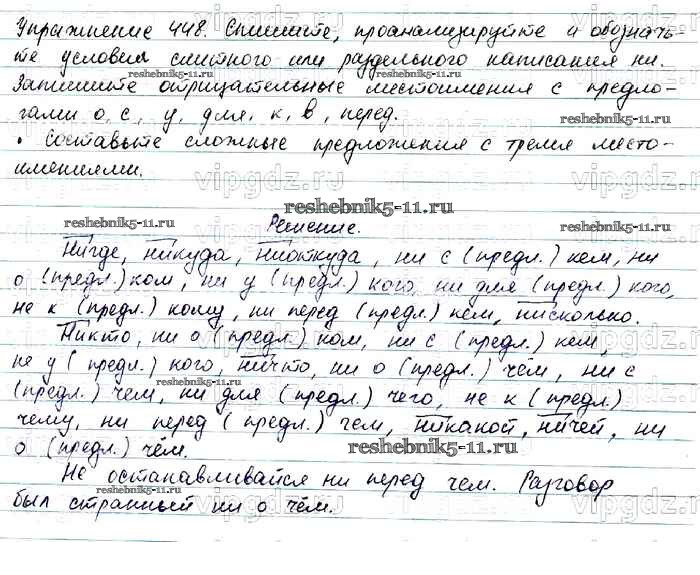 Упражнение 448. Спишите, проанализируйте и обозначь-
те условия слитного или раздельного написания ни.
reshebnik5-11.ru
Запишите отрицательные местоимения с предло-
гами о, с, у, для, к, в, перед.
reshebnik5-11.ru
• Составьте сложные предложения с тремя место-
имениями.
vipgdz.ru
reshebnik5-11.ru
reshebnik5-11.ru
Решение.
Нигде, никуда, ниоткуда, ни с (предл.) кем, ни
о (предл.) ком, ни у (предл.) кого, ни для (предл.) кого,
не к (предл.) кому, ни перед (предл.) кем, нисколько.
Никто, ни о (предл.) ком, ни с (предл.) кем,
не у (предл.) кого, ничто, ни о (предл.) чём, ни с
reshebnik5-11.ru
(предл.) чем, ни для (предл.) чего, не к (предл.)
чему, ни перед (предл.) чем, никакой, ничей, ни
о (предл.) чём.
reshebnik5-11.ru
Не останавливайся ни перед чем. Разговор
reshebnik5-11.ru
был странный ни о чём.